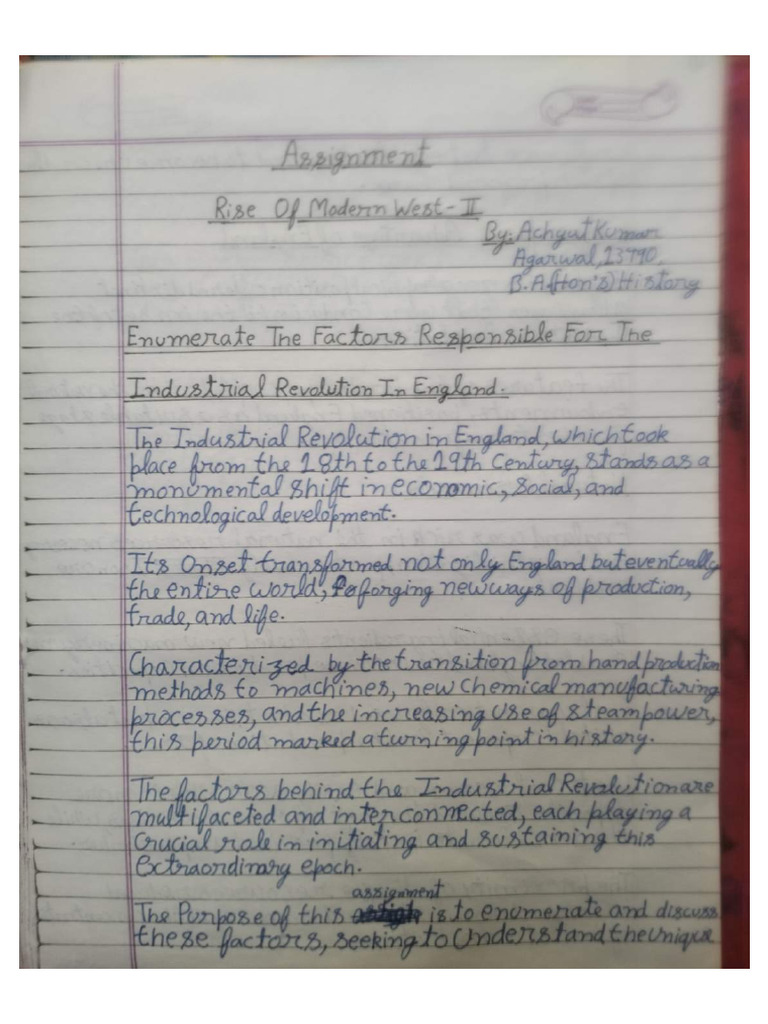 Assignment
Rise Of Modern West-II
By: Achyut Kumar
Agarwal, 23790.
B.A.(Hon's) History
Enumerate The Factors Responsible For The
Industrial Revolution In England.
The Industrial Revolution in England, which took
place from the 18th to the 19th Century, stands as a
monumental shift in economic, social, and
technological development.
Its Onset transformed not only England but eventually
the entire world, forging new ways of production,
trade, and life.
Characterized by the transition from hand production
methods to machines, new Chemical manufacturing
processes, and the increasing use of steam power,
this period marked a turning point in history.
The factors behind the Industrial Revolution are
multifaceted and interconnected, each playing a
crucial role in initiating and sustaining this
extraordinary epoch.
assignment
The Purpose of this is to enumerate and discuss
these factors, seeking to understand the unique